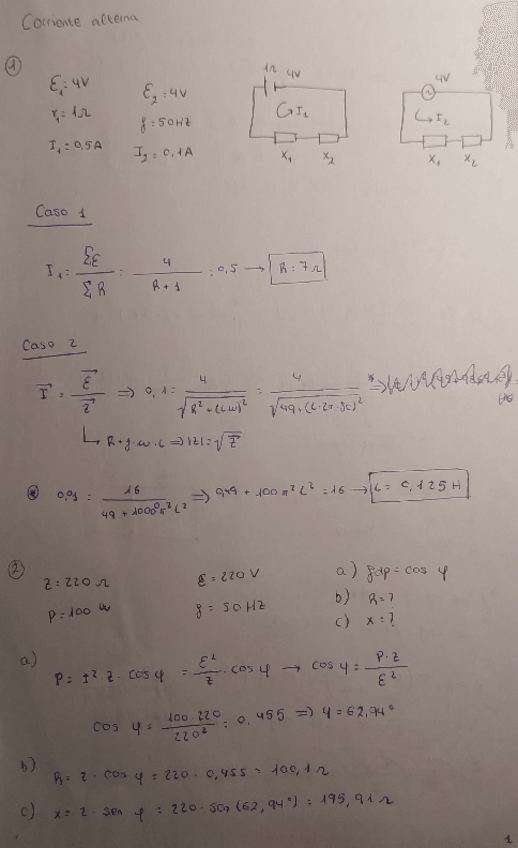 Corriente alterna
1
ε₁ = 4V ε₂ = 4V
r₁ = 1Ω f = 50Hz
I₁ = 0,5A I₂ = 0,1A
4V I₁ X₁ X₂
4V I₂ X₁ X₂
Caso 1
I₁ = Σε / ΣR = 4 / (R + 1) = 0,5 → R = 7Ω
Caso 2
I = ε / Z ⇒ 0,1 = 4 / √(R² + (Lω)²) = 4 / √(49 + (L·2π·50)²) * ⇒
↳ R + j·ω·L ⇒ |Z| = √Z
* 0,01 = 16 / (49 + 10000π²L²) ⇒ 0,49 + 100π²L² = 16 → L = 0,125H
2
Z = 220Ω ε = 220V a) fdp = cos φ
P = 100 W f = 50Hz b) R = ?
c) X = ?
a) P = I² Z · cos φ = ε² / Z · cos φ → cos φ = P·Z / ε²
cos φ = 100·220 / 220² = 0,455 ⇒ φ = 62,94°
b) R = Z · cos φ = 220 · 0,455 = 100,1Ω
c) X = Z · sen φ = 220 · sen (62,94°) = 195,91Ω
1